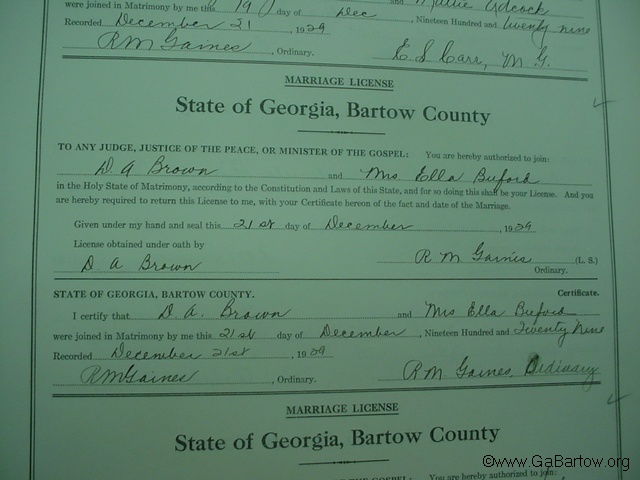 and Mattie Adcock
were joined in Matrimony by me this 19 day of Dec , Nineteen Hundred and twenty nine
Recorded December 21 , 1929
RM Gaines , Ordinary. E S Carr, M G.
MARRIAGE LICENSE
State of Georgia, Bartow County
TO ANY JUDGE, JUSTICE OF THE PEACE, OR MINISTER OF THE GOSPEL: You are hereby authorized to join:
D. A Brown and Mrs Ella Buford
in the Holy State of Matrimony, according to the Constitution and Laws of this State, and for so doing this shall be your License. And you
are hereby required to return this License to me, with your Certificate hereon of the fact and date of the Marriage.
Given under my hand and seal this 21st day of December , 1929
License obtained under oath by
D A Brown R M Gaines (L. S.)
Ordinary.
STATE OF GEORGIA, BARTOW COUNTY. Certificate.
I certify that D. A. Brown and Mrs Ella Buford
were joined in Matrimony by me this 21st day of December , Nineteen Hundred and Twenty Nine
Recorded December 21st , 1929
RM Gaines , Ordinary. RM Gaines, Ordinary
MARRIAGE LICENSE
State of Georgia, Bartow County
You are hereby authorized to join:
©www.GaBartow.org